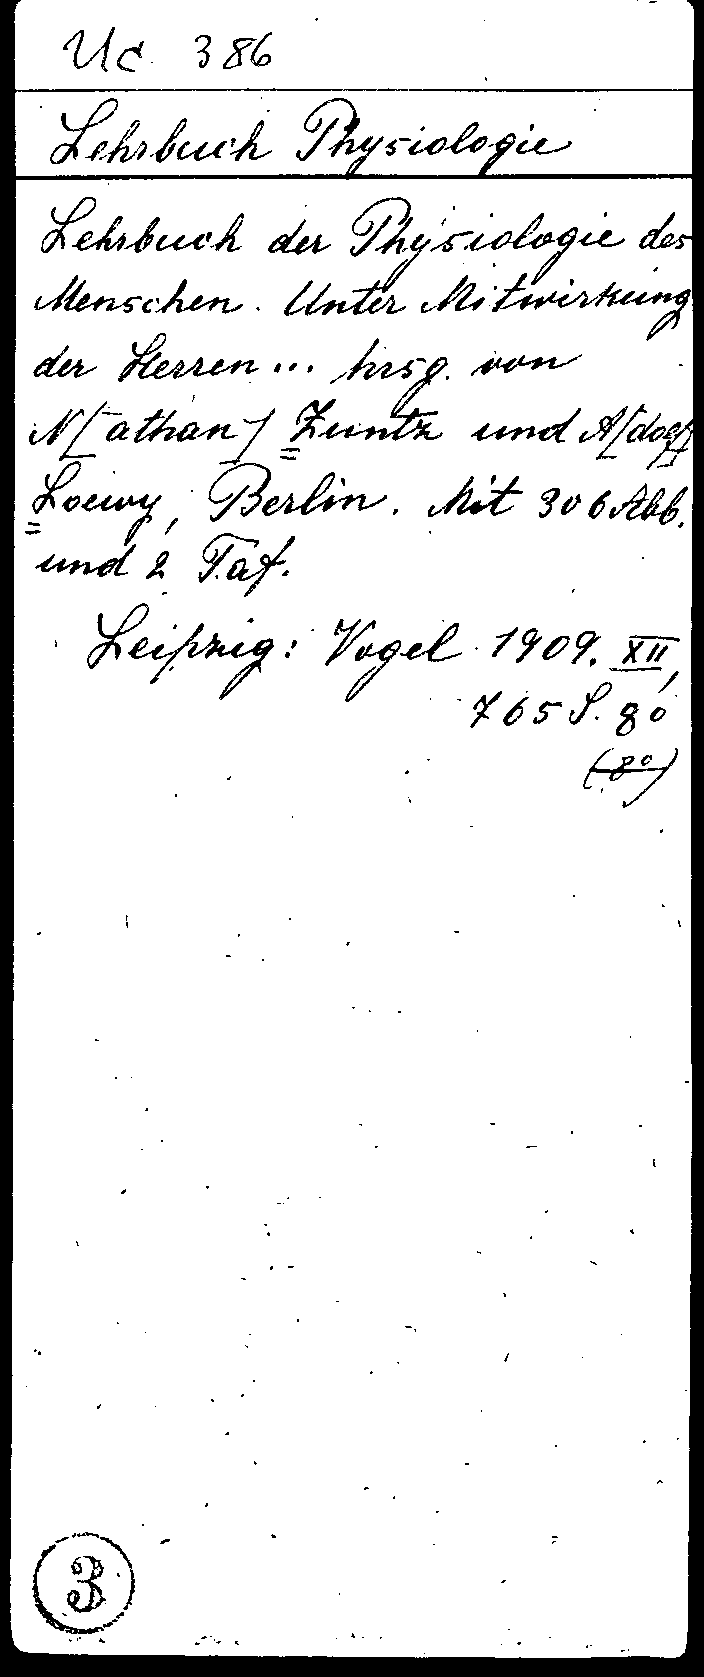 Uc 386
Lehrbuch Physiologie
Lehrbuch der Physiologie des
Menschen. Unter Mitwirkung
der Herren... hrsg. von
N[athan] Zuntz und A[dolf]
Loewy, Berlin. Mit 306 Abb.
und 2 Taf.
Leipzig: Vogel 1909. XII,
765 S. 8°
(8°)
3